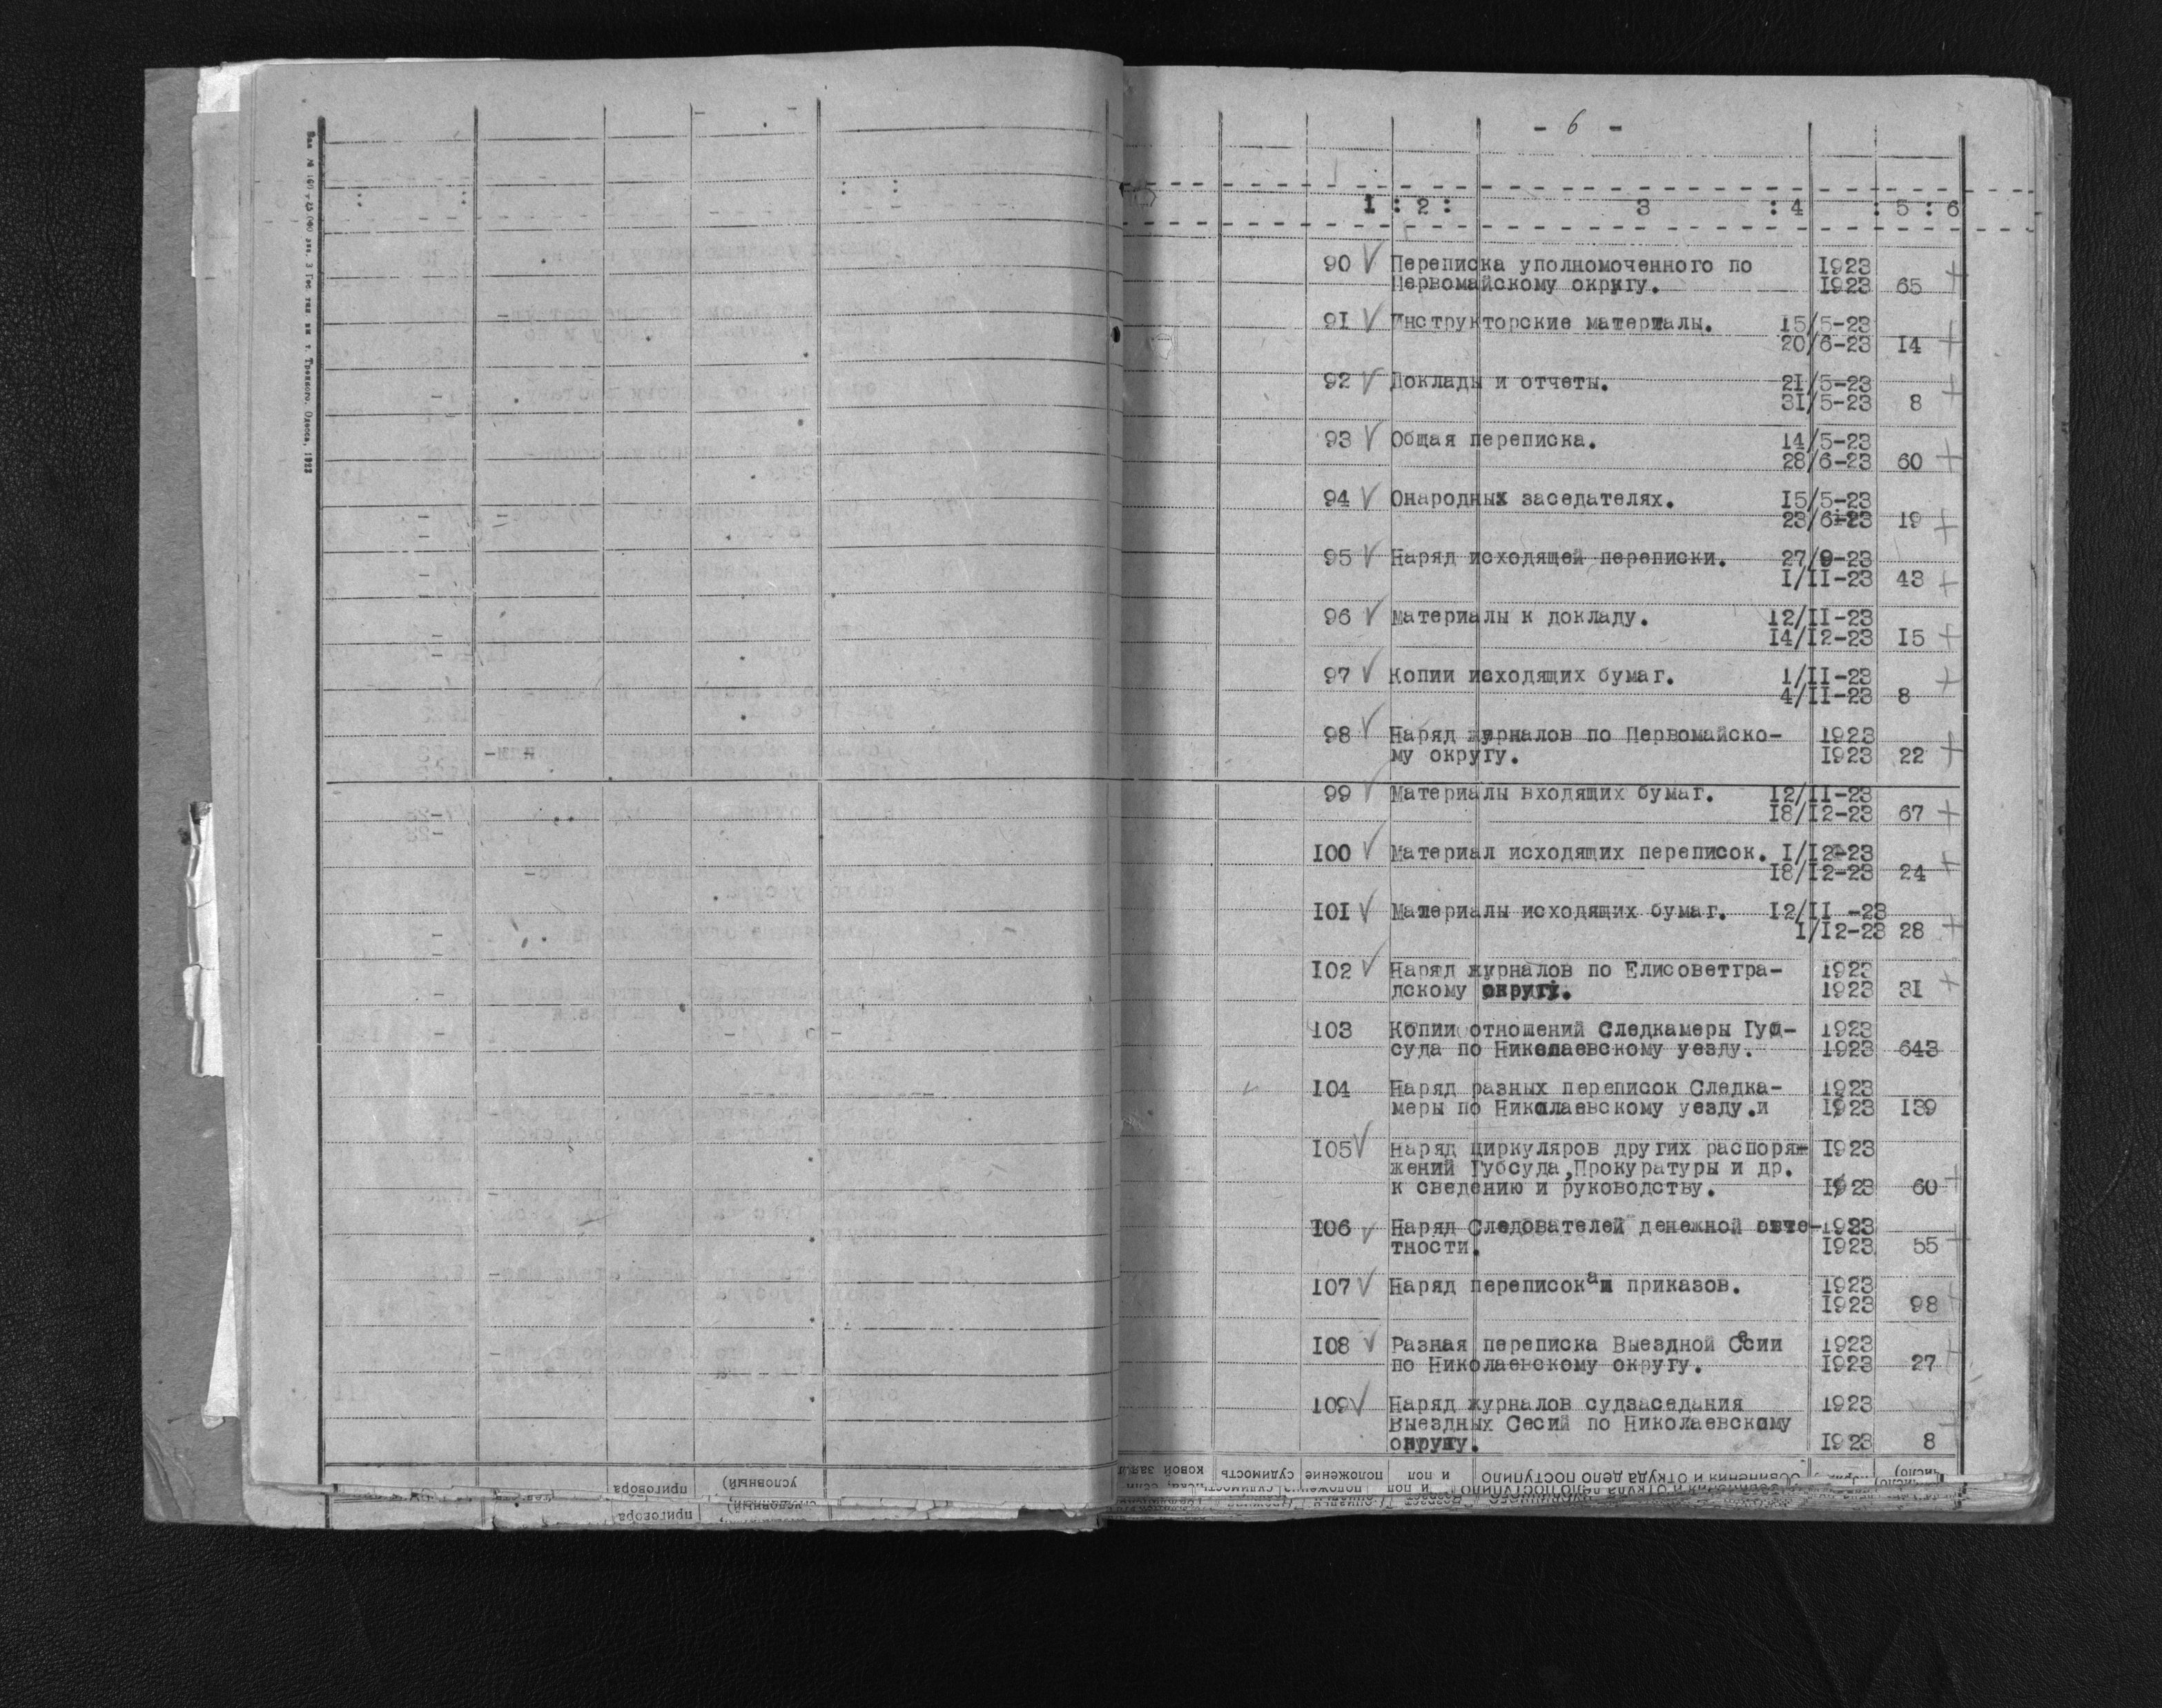 - 6 -
1 : 2 : 3 : 4 : 5 : 6
90 √ Переписка уполномоченного по 1923
Первомайскому округу. 1923 65 +
91 √ Инструкторские материалы. 15/5-23
20/6-23 14 +
92 √ Доклады и отчеты. 21/5-23 +
31/5-23 8
93 √ Общая переписка. 14/5-23
28/6-23 60 +
94 √ Онародных заседателях. 15/5-23
23/6-23 19 +
95 √ Наряд исходящей переписки. 27/9-23
1/11-23 43 +
96 √ Материалы к докладу. 12/11-23
14/12-23 15 +
97 √ Копии исходящих бумаг. 1/11-23 +
4/11-23 8
98 √ Наряд журналов по Первомайско- 1923
му округу. 1923 22 +
99 √ Материалы входящих бумаг. 12/11-23
18/12-23 67 +
100 √ Материал исходящих переписок. 1/12-23
18/12-23 24 +
101 √ Материалы исходящих бумаг. 12/11 -23
1/12-23 28 +
102 √ Наряд журналов по Елисоветгра- 1923
дскому округу. 1923 31 +
103 Копии отношений Следкамеры Губ- 1923
суда по Николаевскому уезду. 1923 643
104 Наряд разных переписок Следка- 1923
меры по Николаевскому уезду.и 1923 139
105 √ Наряд циркуляров других распоря- 1923
жений Губсуда,Прокуратуры и др.
к сведению и руководству. 1923 60 +
106 √ Наряд Следователей денежной отче- 1923
тности. 1923 55 +
107 √ Наряд переписок приказов. 1923
1923 98 +
108 √ Разная переписка Выездной Сесии 1923
по Николаевскому округу. 1923 27 +
109 √ Наряд журналов судзаседания 1923
Выездных Сесий по Николаевскому
округу. 1923 8 +
приговора
условный)
судимость
положение
и пол
обвинения и откуда дело поступило
приговора